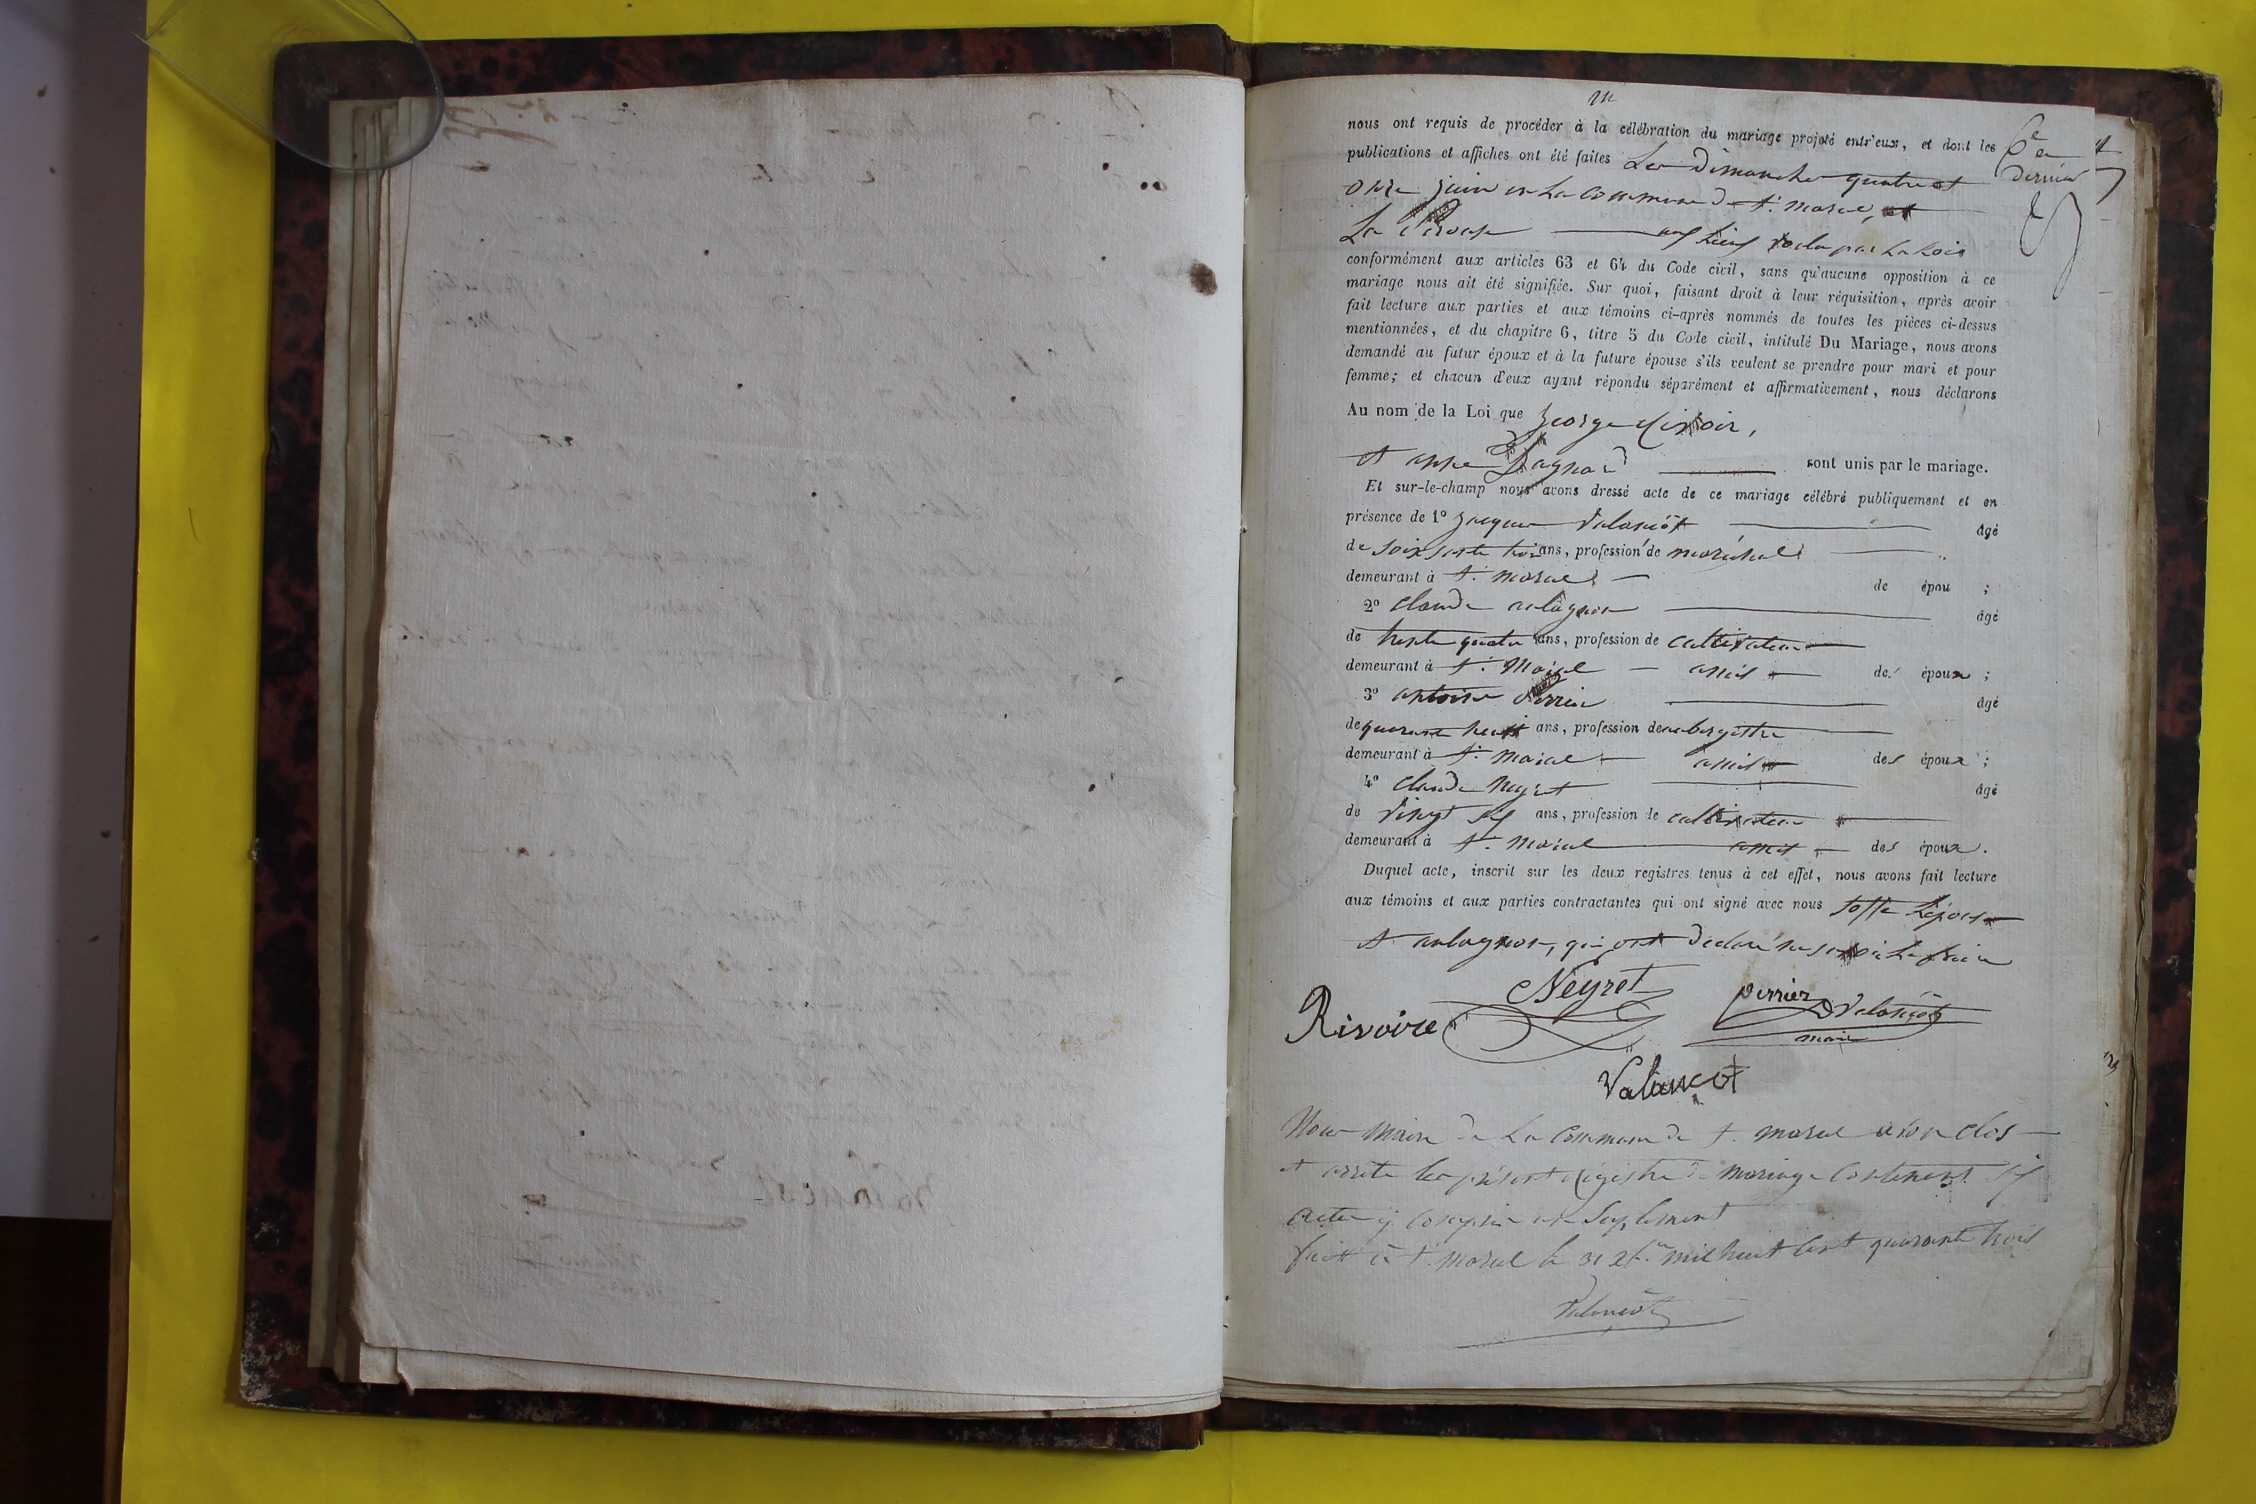 nous ont requis de procéder à la célébration du mariage projeté entr'eux, et dont les
publications et affiches ont été faites Les dimanches quatre et
onze juin en La Commune de St. Marcel, et
La Pérouse aux lieux voulu par La Lois
conformément aux articles 63 et 64 du Code civil, sans qu'aucune opposition à ce
mariage nous ait été signifiée. Sur quoi, faisant droit à leur réquisition, après avoir
fait lecture aux parties et aux témoins ci-après nommés de toutes les pièces ci-dessus
mentionnées, et du chapitre 6, titre 5 du Code civil, intitulé Du Mariage, nous avons
demandé au futur époux et à la future épouse s'ils veulent se prendre pour mari et pour
femme; et chacun d'eux ayant répondu séparément et affirmativement, nous déclarons
Au nom de la Loi que George Rivoir,
et anne sont unis par le mariage.
Et sur-le-champ nous avons dressé acte de ce mariage célébré publiquement et en
présence de 1º Jacques Valancôt âgé
de soixsante trois ans, profession de maréchal
demeurant à St. Marcel de épou ;
2º Claude aulagnon âgé
de trente quatre ans, profession de cultivateur
demeurant à St. Marcel amis des époux ;
3º antoine Perrier âgé
de quarante huit ans, profession de aubergiste
demeurant à St. Marcel amis des époux ;
4º Claude Neyret âgé
de vingt six ans, profession de cultivateur
demeurant à St. Marcel amis des époux.
Duquel acte, inscrit sur les deux registres tenus à cet effet, nous avons fait lecture
aux témoins et aux parties contractantes qui ont signé avec nous L'épouse
et aulagnon, qui ont déclaré ne
6e et
dernier
Neyret
Perrier
Valancôt
maire
Rivoire
Valancot
Nous Maire de La Commune de St. Marcel avons clos
et arrêté le présent Régistre de mariage Contenant six
actes y compris
fait à St. Marcel le 31 Xbre mil huit cent quarante trois
Valancôt